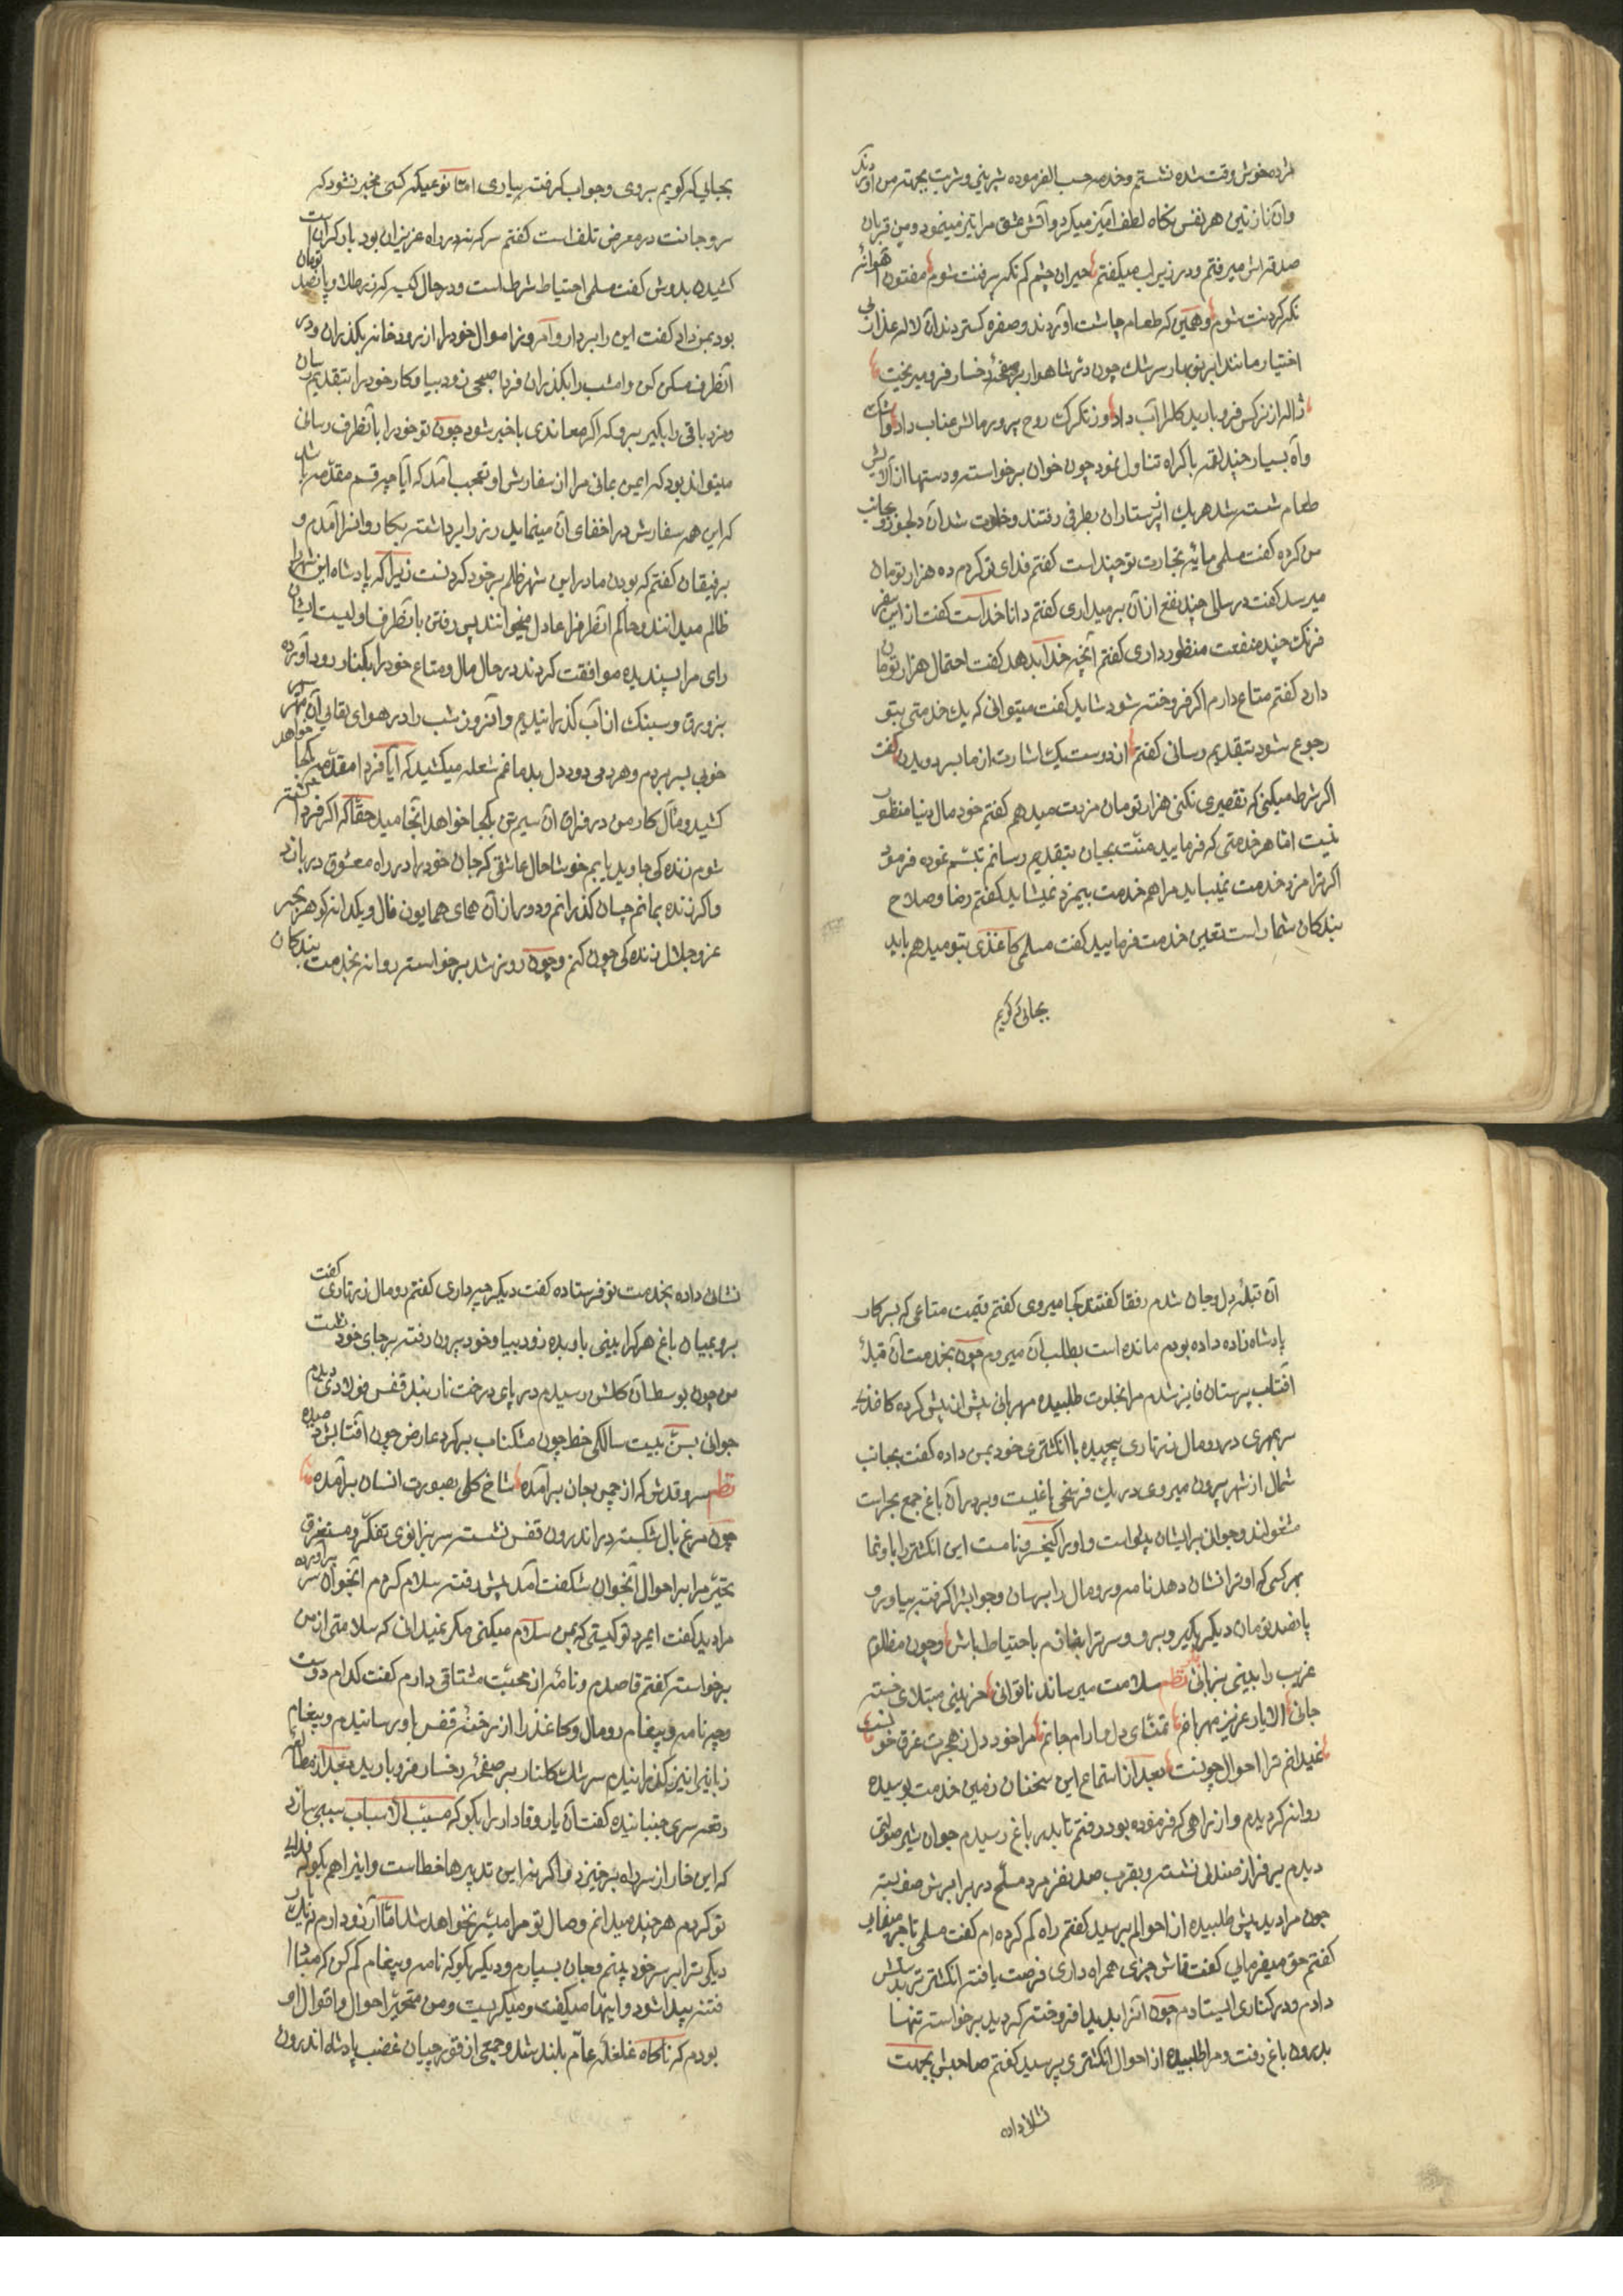 کرده خوش وقت شده نشستم و خدمه حسب الفرموده شیرینی و شربت بجهته من آوردند
و آن نازنین هر نفس نگاه لطف آمیز میکرد و آتش عشق مرا تیز مینمود و من قربان
صدقه اش میرفتم و در زیر لب میگفتم حیران چشم کم نگه پر فنت شوم مفتون
نگه کردنت شوم و همین که طعام چاشت آوردند و صفره گستردند آن لاله عذار بی
اختیار مانند ابر نوبهار سرشک چون در شاهوار بر صفحهٔ رخسار فرو میریخت
ژاله از نرگس فرو بارید گل را آب داد وز تگرگ روح پرور مالش عناب داد و اشک
و آه بسیار چند لقمه باکراه تناول نمود چون خوان برخواسته و دستها از آلایش
طعام شسته شد هر یک از پرستاران بطرفی رفتند و خلوت شد آن دلجو رو بجانب
من کرده گفت مسلمی مایهٔ تجارت تو چند است گفتم فدای تو کردم ده هزار تومان
میرسد گفت در سالی چند نفع از آن برمیداری گفتم دانا خداست گفت از این سفر
فرنگ چند منفعت منظور داری گفتم آنچه خدا بدهد گفت احتمال هزار تومان
دارد گفتم متاع دارم اگر فروخته شود شاید گفت میتوانی که یک خدمتی بتو
رجوع شود بتقدیم رسانی گفتم از دوست یک اشارت از ما بسر دویدن گفت
اگر شرط میکنی که تقصیری نکنی هزار تومان مزدت میدهم گفتم خود مال دنیا منظور
نیست اما هر خدمتی که فرمایید منت بجان بتقدیم رسانم تبسم نموده فرمود
اگر ترا مزد خدمت نمیباید مرا هم خدمت بیمزد نمیشاید گفتم رضا و صلاح
بندکان شما راست تعیین خدمت فرمایید گفت مسلمی کاغذی بتو میدهم باید
بجائی که گویم
بجایی که گویم بروی و جواب گرفته بیاری اما نوعیکه کسی مخبر نشود که
سر و جانت در معرض تلف است گفتم سر که نه در راه عزیزان بود بار گرانست
کشیدن بدوش گفت مسلمی احتیاط شرط است و در حال کیسه که زر طلا و پانصد تومان
بود بمن داد گفت این را بردار و امروز اموال خود را از رودخانه بگذران و در
آنطرف مسکن کن و امشب را بگذران فردا صبحی زود بیا و کار خود را بتقدیم رسان
و مزد باقی را بگیر برو که اگر معاندی باخبر شود چون تو خود را بآنطرف رسانی
میتواند بود که ایمن بمانی مرا از سفارش او تعجب آمد که آیا چه قسم مقدمه باشد
که این همه سفارش در اخفای آن مینماید زر را برداشته بکاروانسرا آمدم و
برفیقان گفتم که بودن ما در این شهر ظلم بر خود کردنست زیرا که پادشاه این شهر را
ظالم میدانند و حاکم آنطرف را عادل میخوانند پس رفتن بآنطرف اولیست ایشان
رای مرا پسندیده موافقت کردند در حال مال و متاع خود را بکنار رود آورده
بزورق و سبنک از آب گذرانیدیم و آنروز شب را در هوای لقای آن مهر سپهر
خوبی بسر بردم و هر دمی دود دل بدماغم شعله میکشید که آیا فردا مقدمه بکجا خواهد
کشید و مآل کار من در فراق آن سیم تن بکجا خواهد انجامید حقا که اگر فردا کشته
شوم زنده کی جاوید یابم خوشا حال عاشقی که جان خود را در راه معشوق دربازد
و اگر زنده بمانم چسان گذرانم و دور از آن همای همایون فال و یکدانه گوهر بحر
عز و جلال زنده کی چون کنم و چون روز شد برخواسته روانه بخدمت بندکان
آن قبلهٔ دل و جان شدم رفقا گفتند کجا میروی گفتم قیمت متاعی که بسرکار
پادشاه زاده داده بودم مانده است بطلب آن میروم چون بخدمت آن قبلهٔ
آفتاب پرستان فایز شدم مرا بخلوت طلبیده مهربانی بیش از پیش کرده کاغذی
سر بمهری در رومال زرتاری پیچیده با انگشتری خود بمن داده گفت بجانب
شمال از شهر بیرون میروی در یک فرسخی باغیست و بر در آن باغ جمع بحراست
مشغولند و جوانی بر ایشان یلواست و او را کیخسرو نامست این انگشتر را باو نما
بهر کسی که او ترا نشان دهد نامه و رومال را برسان و جوابش را گرفته بیاور و
پانصد تومان دیگر بگیر و برو و سر ترا بفاقم باحتیاط باش و چون مظلوم
غریب را بینی بزبانی نظم سلامت میرساند ناتوانی حزینی مبتلای خسته
جانی الا یار عزیز مهربانم تمنای دل و آرام جانم مرا خود دل ز هجرت غرق خونست
نمیدانم ترا احوال چونست بعد از استماع این سخنان زمین خدمت بوسیده
روانه گردیدم و از راهی که فرموده بود رفتم تا بدر باغ رسیدم جوان شیر صولتی
دیدم بر فراز صندلی نشسته و بقرب صد نفر مرد مسلح در برابرش صف بسته
چون مرا دید پیش طلبیده از احوالم پرسید گفتم راه گم کرده ام گفت مسلمی تاجر مینمایی
گفتم حق میفرمایی گفت قماش چیزی همراه داری فرصت یافته انگشتر بدستش
دادم و در کناری ایستادم چون آنرا بدید افروخته گردید برخواسته تنها
بدرون باغ رفت و مرا طلبیده از احوال انگشتری پرسید گفتم صاحبش بجهت
نشانی داده
نشانی داده بخدمت تو فرستاده گفت دیگر چه داری گفتم رومال زرتاری گفت
برو بمیان باغ هر کرا بینی باو بده زود بیا و خود بیرون رفته بر جای خود نشست
من چون بوسط آن گلشن رسیدم در پای درخت نار بند قفس فولادی دیدم
جوانی بسن بیست سالگی خط چون مشکناب بر گرد عارض چون آفتابش دمیده
نظم سرو قدش که از چمن جان برآمده شاخ گلی بصورت انسان برآمده
چون مرغ بال شکسته در اندرون قفس نشسته سر بزانوی تفکر و مستغرق
تحیر مرا بر احوال آنجوان شگفت آمد پیش رفته سلام کردم آنجوان سر برآورده
مرا دید گفت ایمرد تو کیستی که بمن سلام میکنی مگر نمیدانی که سلامتی از من
برخواسته گفتم قاصدم و نامهٔ از محبت مشتاقی دارم گفت کدام دوست
و چه نامه و پیغام رومال و کاغذ را از رخنهٔ قفس باو رسانیدم و پیغام
زبانی را نیز گذرانیده سرشک گلنار بر صفحهٔ رخسار فرو بارید و بعد از مطالعه
رقعه سری جنبانیده گفت آن یار وفادار را بگو که مسبب الاسباب سببی سازد
که این خار از سر راه برخیزد و اگر نه این تدبیرها خطاست و اینرا هم بگو که فدای
تو کردم هر چند میدانم وصال تو مرا میسر نخواهد شد اما آرزو دارم که یکبار
دیگر ترا بر سر خود بینم و جان بسپارم و دیگر بگو که نامه و پیغام کم کن که مبادا
فتنه پیدا شود و اینها میگفت و میگریست و من متحیر احوال و اقوال او
بودم که ناگاه غلغلهٔ عام بلند شد و جمعی از قورچیان غضب پادشاه اندرون